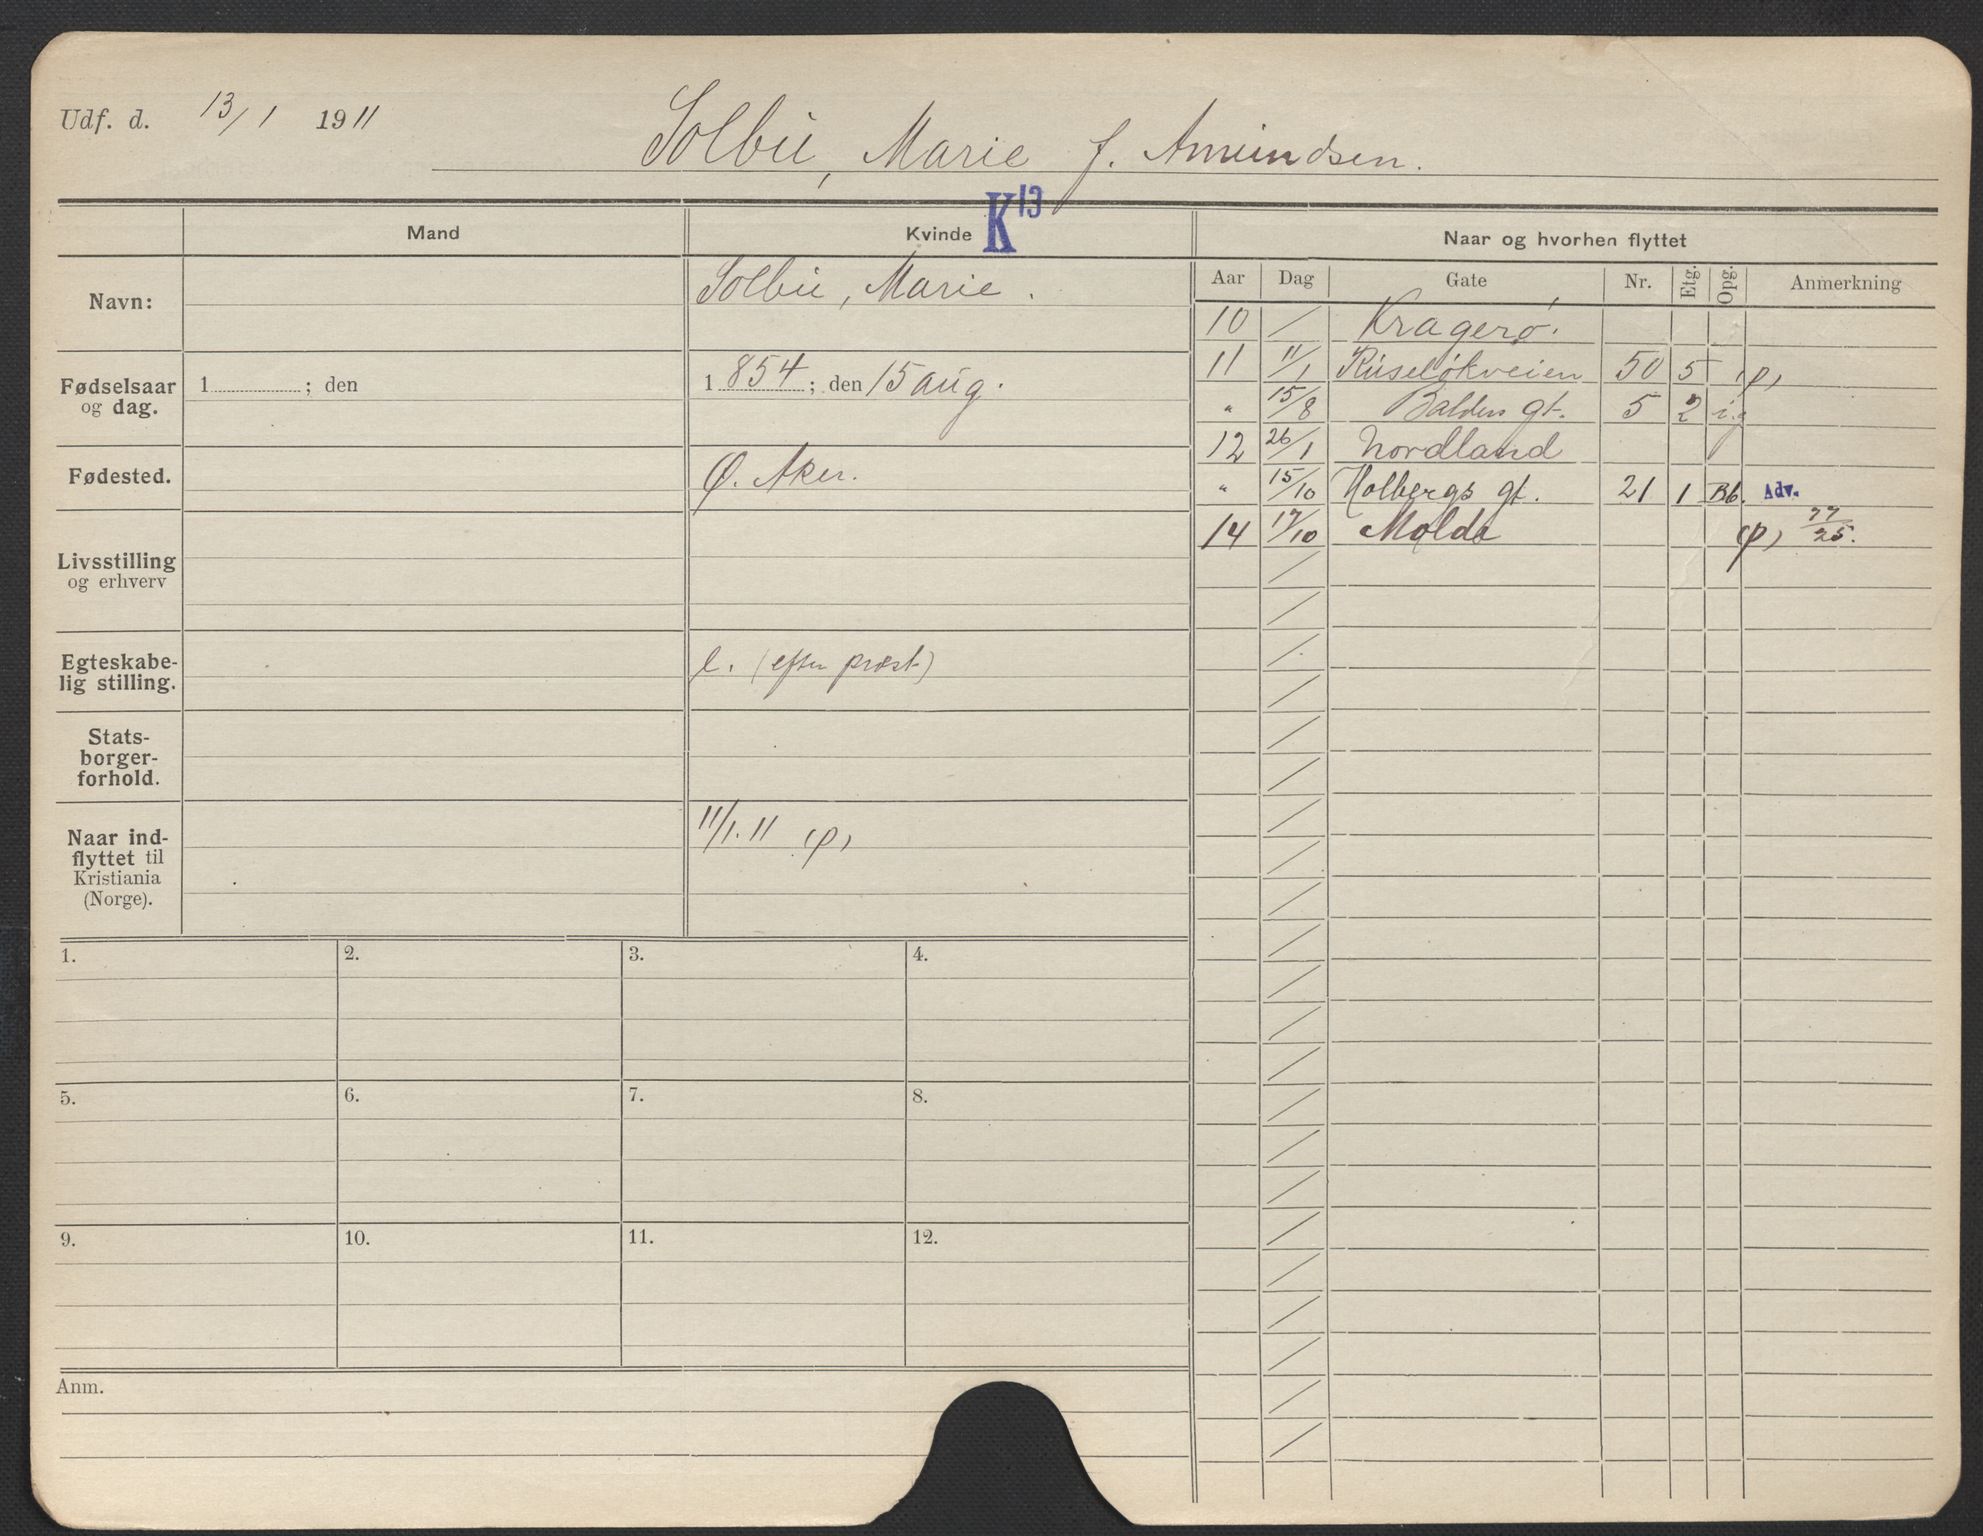 Udf. d. 13/1 1911
Solbu, Marie f. Amundsen.
K13
Mand
Kvinde
Naar og hvorhen flyttet
Aar Dag Gate Nr. Etg. Opg. Anmerkning
Navn:
Solbu, Marie.
Fødselsaar og dag.
1 ; den
1 854 ; den 15 aug.
Fødested.
Ø. Aker.
Livsstilling og erhverv
Egteskabe-
lig stilling.
e. (efter præst)
Stats-
borger-
forhold.
Naar ind-
flyttet til
Kristiania
(Norge).
11/1. 11 (p)
10 / Kragerø.
11 11/1 Ruseløkveien 50 5 (p)
" 15/8 Balders gt. 5 2 i.g
12 26/1 Nordland
" 15/10 Holbergs gt. 21 1 Bb. Adv.
14 17/10 Molde (p) 77/25.
1.
2.
3.
4.
5.
6.
7.
8.
9.
10.
11.
12.
Anm.